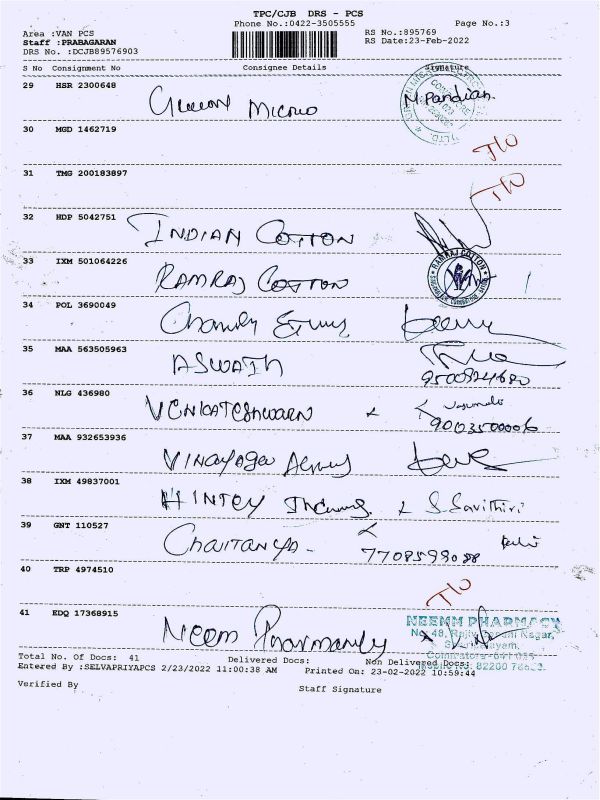 TPC/CJB DRS - PCS
Phone No.:0422-3505555 Page No.:3
Area :VAN PCS RS No.:895769
Staff :PRABAGARAN RS Date:23-Feb-2022
DRS No. :DCJB89576903
S No Consignment No Consignee Details Signature
29 HSR 2300648 Micro M. Pandian
30 MGD 1462719 T/O
31 TMG 200183897 T/O
32 HDP 5042751 INDIAN COTTON
33 IXM 501064226 RAMRAJ COTTON RAMRAJ COTTON
34 POL 3690049
35 MAA 563505963 ASWATH
36 NLG 436980 VENKATESHWARN
37 MAA 932653936 VINAYAGA
38 IXM 49837001 S. Savithiri
39 GNT 110527 CHAITANYA - 7708598088
40 TRP 4974510 T/O
41 EDQ 17368915 NEEM Pharmacy
NEEMM PHARMACY
No. 48, Rajiv Gandhi Nagar,
Total No. Of Docs: 41 Delivered Docs: Non Delivered Docs:
Entered By :SELVAPRIYAPCS 2/23/2022 11:00:38 AM Printed On: 23-02-2022 10:59:44
Verified By Staff Signature